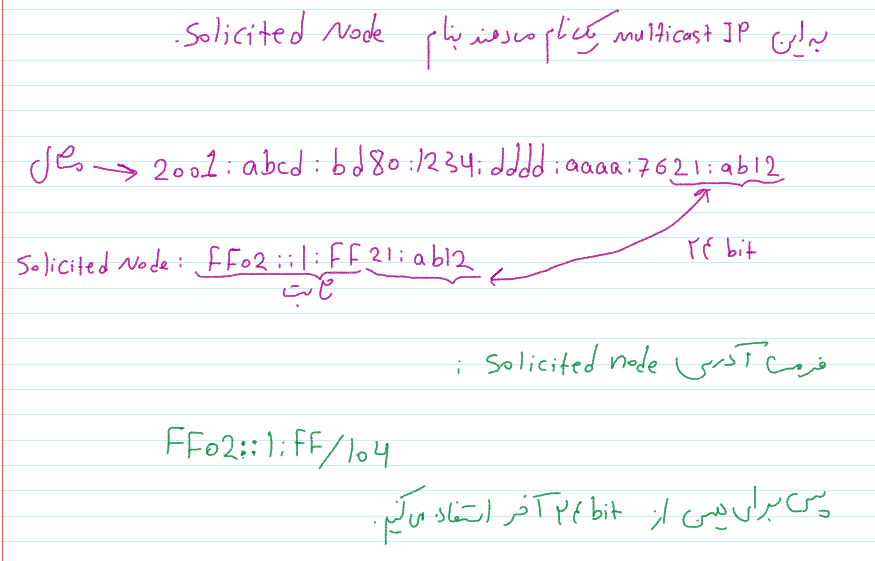 به این multicast IP یک نام می‌دهند بنام Solicited Node.
مثال → 2001:abcd:bd80:1234:dddd:aaaa:7621:ab12
۲۴ bit
Solicited Node: FF02::1:FF21:ab12
ثابت
فرمت آدرس Solicited node :
FF02::1:FF/104
پس برای از ۲۴ bit آخر استفاده می‌کنیم.